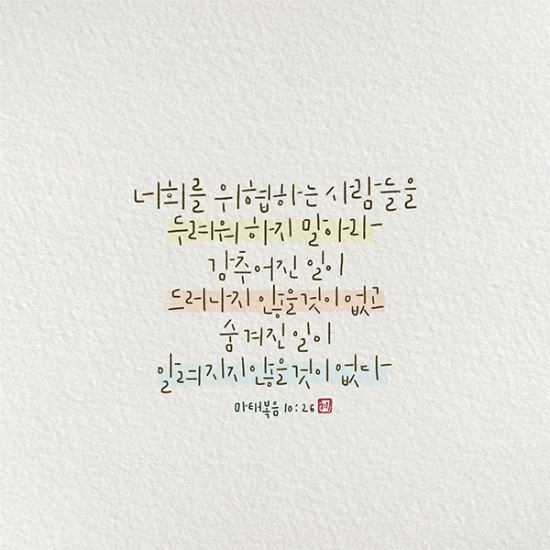 너희를 위협하는 사람들을
두려워 하지 말아라
감추어진 일이
드러나지 않을것이 없고
숨겨진 일이
알려지지않을것이 없다
마태복음 10:26